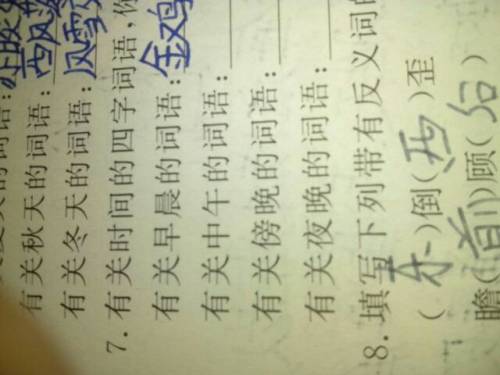 的词语:
有关秋天的词语:西风
有关冬天的词语:风雪
7. 有关时间的四字词语,你
有关早晨的词语:金鸡
有关中午的词语:
有关傍晚的词语:
有关夜晚的词语:
8. 填写下列带有反义词的
(东)倒(西)歪
瞻(前)顾(后)